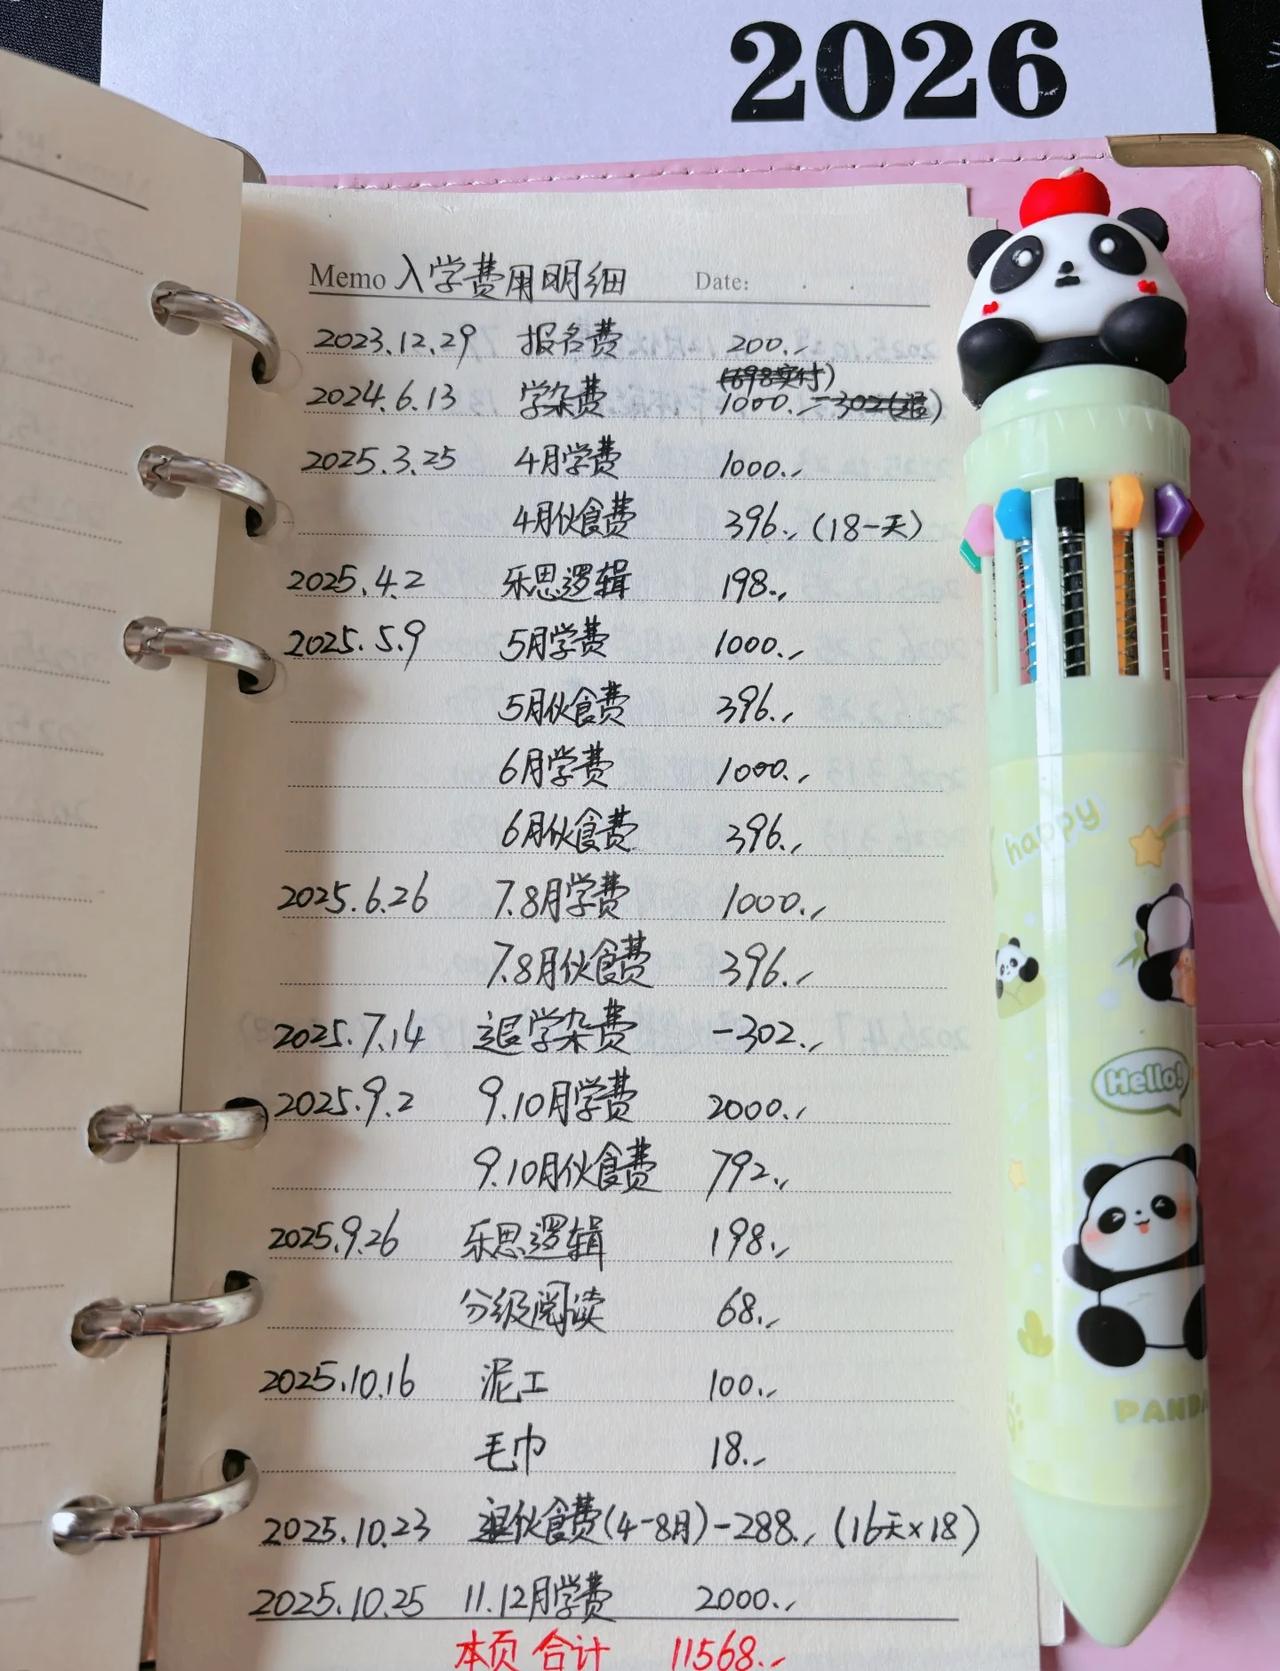 2026
Memo 入学费用明细 Date:
2023.12.29 报名费 200.
(698实付)
2024.6.13 学杂费 1000. -302(退)
2025.3.25 4月学费 1000.
4月伙食费 396. (18-天)
2025.4.2 乐思逻辑 198.
2025.5.9 5月学费 1000.
5月伙食费 396.
6月学费 1000.
6月伙食费 396.
2025.6.26 7.8月学费 1000.
7.8月伙食费 396.
2025.7.14 退学杂费 -302.
2025.9.2 9.10月学费 2000.
9.10月伙食费 792.
2025.9.26 乐思逻辑 198.
分级阅读 68.
2025.10.16 泥工 100.
毛巾 18.
2025.10.23 退伙食费(4-8月) -288. (16天×18)
2025.10.25 11.12月学费 2000.
本页合计 11568.
happy
Hello!
PANDA